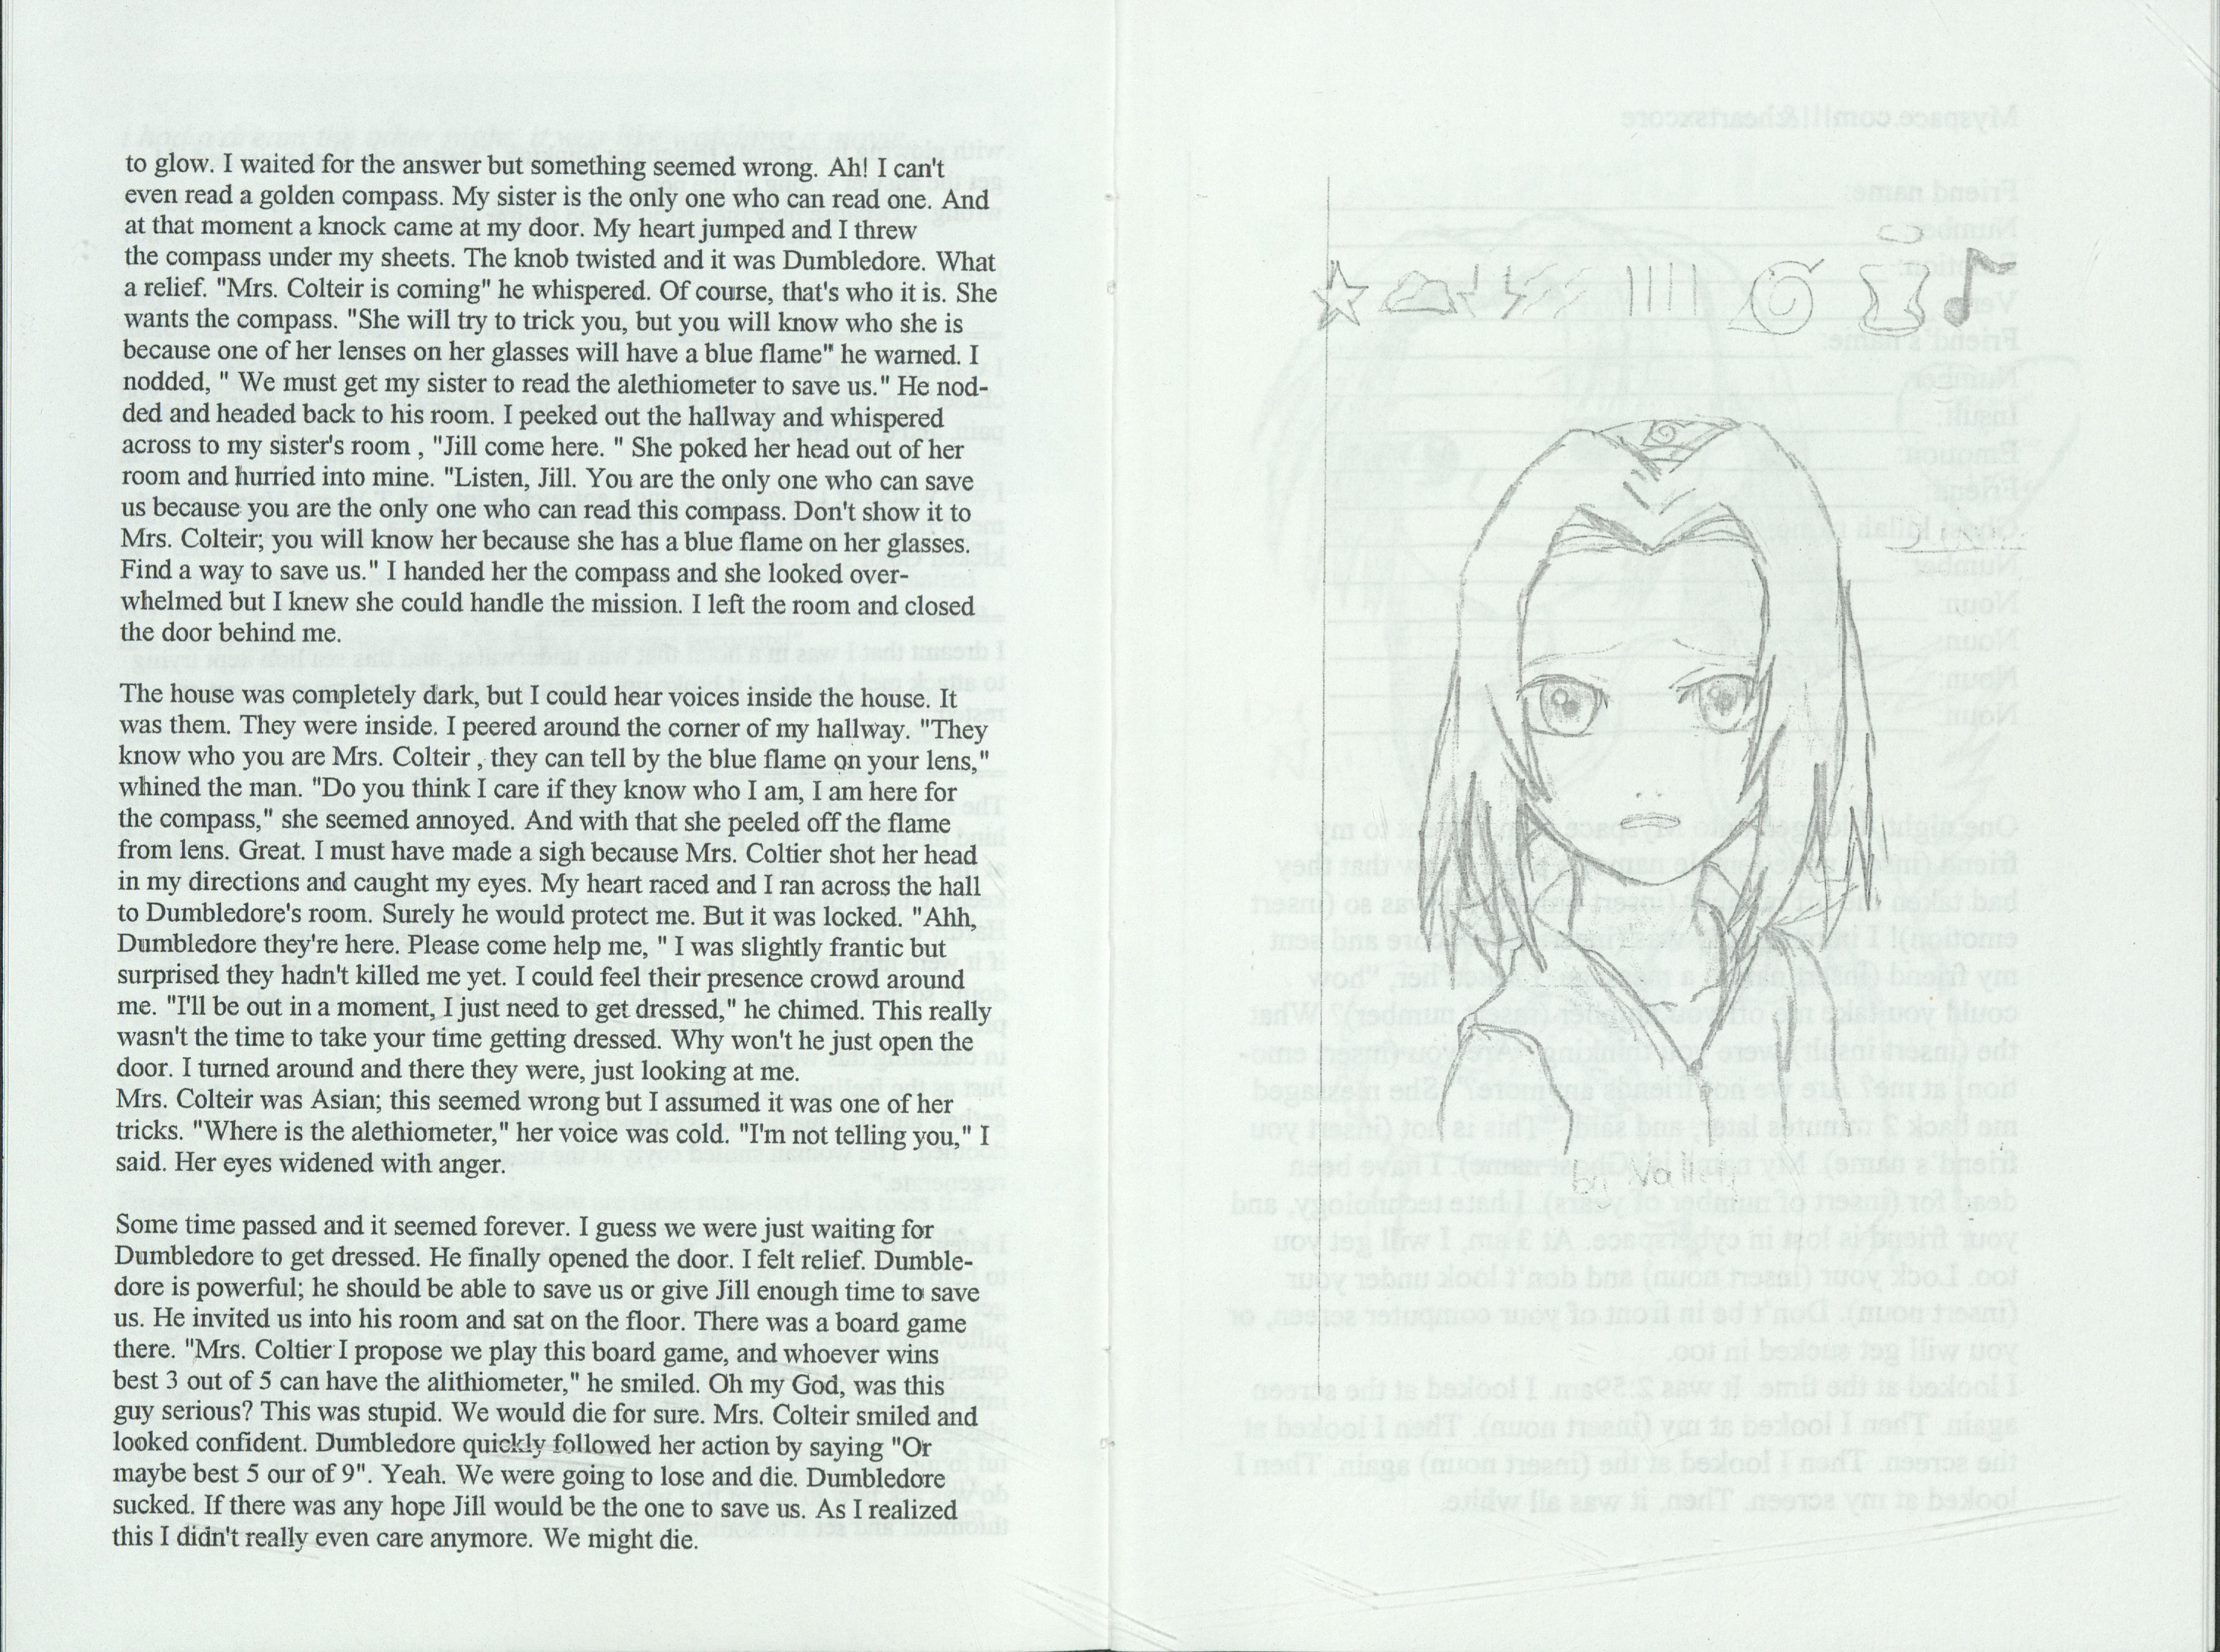 to glow. I waited for the answer but something seemed wrong. Ah! I can't
even read a golden compass. My sister is the only one who can read one. And
at that moment a knock came at my door. My heart jumped and I threw
the compass under my sheets. The knob twisted and it was Dumbledore. What
a relief. "Mrs. Colteir is coming" he whispered. Of course, that's who it is. She
wants the compass. "She will try to trick you, but you will know who she is
because one of her lenses on her glasses will have a blue flame" he warned. I
nodded, " We must get my sister to read the alethiometer to save us." He nod-
ded and headed back to his room. I peeked out the hallway and whispered
across to my sister's room , "Jill come here. " She poked her head out of her
room and hurried into mine. "Listen, Jill. You are the only one who can save
us because you are the only one who can read this compass. Don't show it to
Mrs. Colteir; you will know her because she has a blue flame on her glasses.
Find a way to save us." I handed her the compass and she looked over-
whelmed but I knew she could handle the mission. I left the room and closed
the door behind me.
The house was completely dark, but I could hear voices inside the house. It
was them. They were inside. I peered around the corner of my hallway. "They
know who you are Mrs. Colteir , they can tell by the blue flame on your lens,"
whined the man. "Do you think I care if they know who I am, I am here for
the compass," she seemed annoyed. And with that she peeled off the flame
from lens. Great. I must have made a sigh because Mrs. Coltier shot her head
in my directions and caught my eyes. My heart raced and I ran across the hall
to Dumbledore's room. Surely he would protect me. But it was locked. "Ahh,
Dumbledore they're here. Please come help me, " I was slightly frantic but
surprised they hadn't killed me yet. I could feel their presence crowd around
me. "I'll be out in a moment, I just need to get dressed," he chimed. This really
wasn't the time to take your time getting dressed. Why won't he just open the
door. I turned around and there they were, just looking at me.
Mrs. Colteir was Asian; this seemed wrong but I assumed it was one of her
tricks. "Where is the alethiometer," her voice was cold. "I'm not telling you," I
said. Her eyes widened with anger.
Some time passed and it seemed forever. I guess we were just waiting for
Dumbledore to get dressed. He finally opened the door. I felt relief. Dumble-
dore is powerful; he should be able to save us or give Jill enough time to save
us. He invited us into his room and sat on the floor. There was a board game
there. "Mrs. Coltier I propose we play this board game, and whoever wins
best 3 out of 5 can have the alithiometer," he smiled. Oh my God, was this
guy serious? This was stupid. We would die for sure. Mrs. Colteir smiled and
looked confident. Dumbledore quickly followed her action by saying "Or
maybe best 5 our of 9". Yeah. We were going to lose and die. Dumbledore
sucked. If there was any hope Jill would be the one to save us. As I realized
this I didn't really even care anymore. We might die.